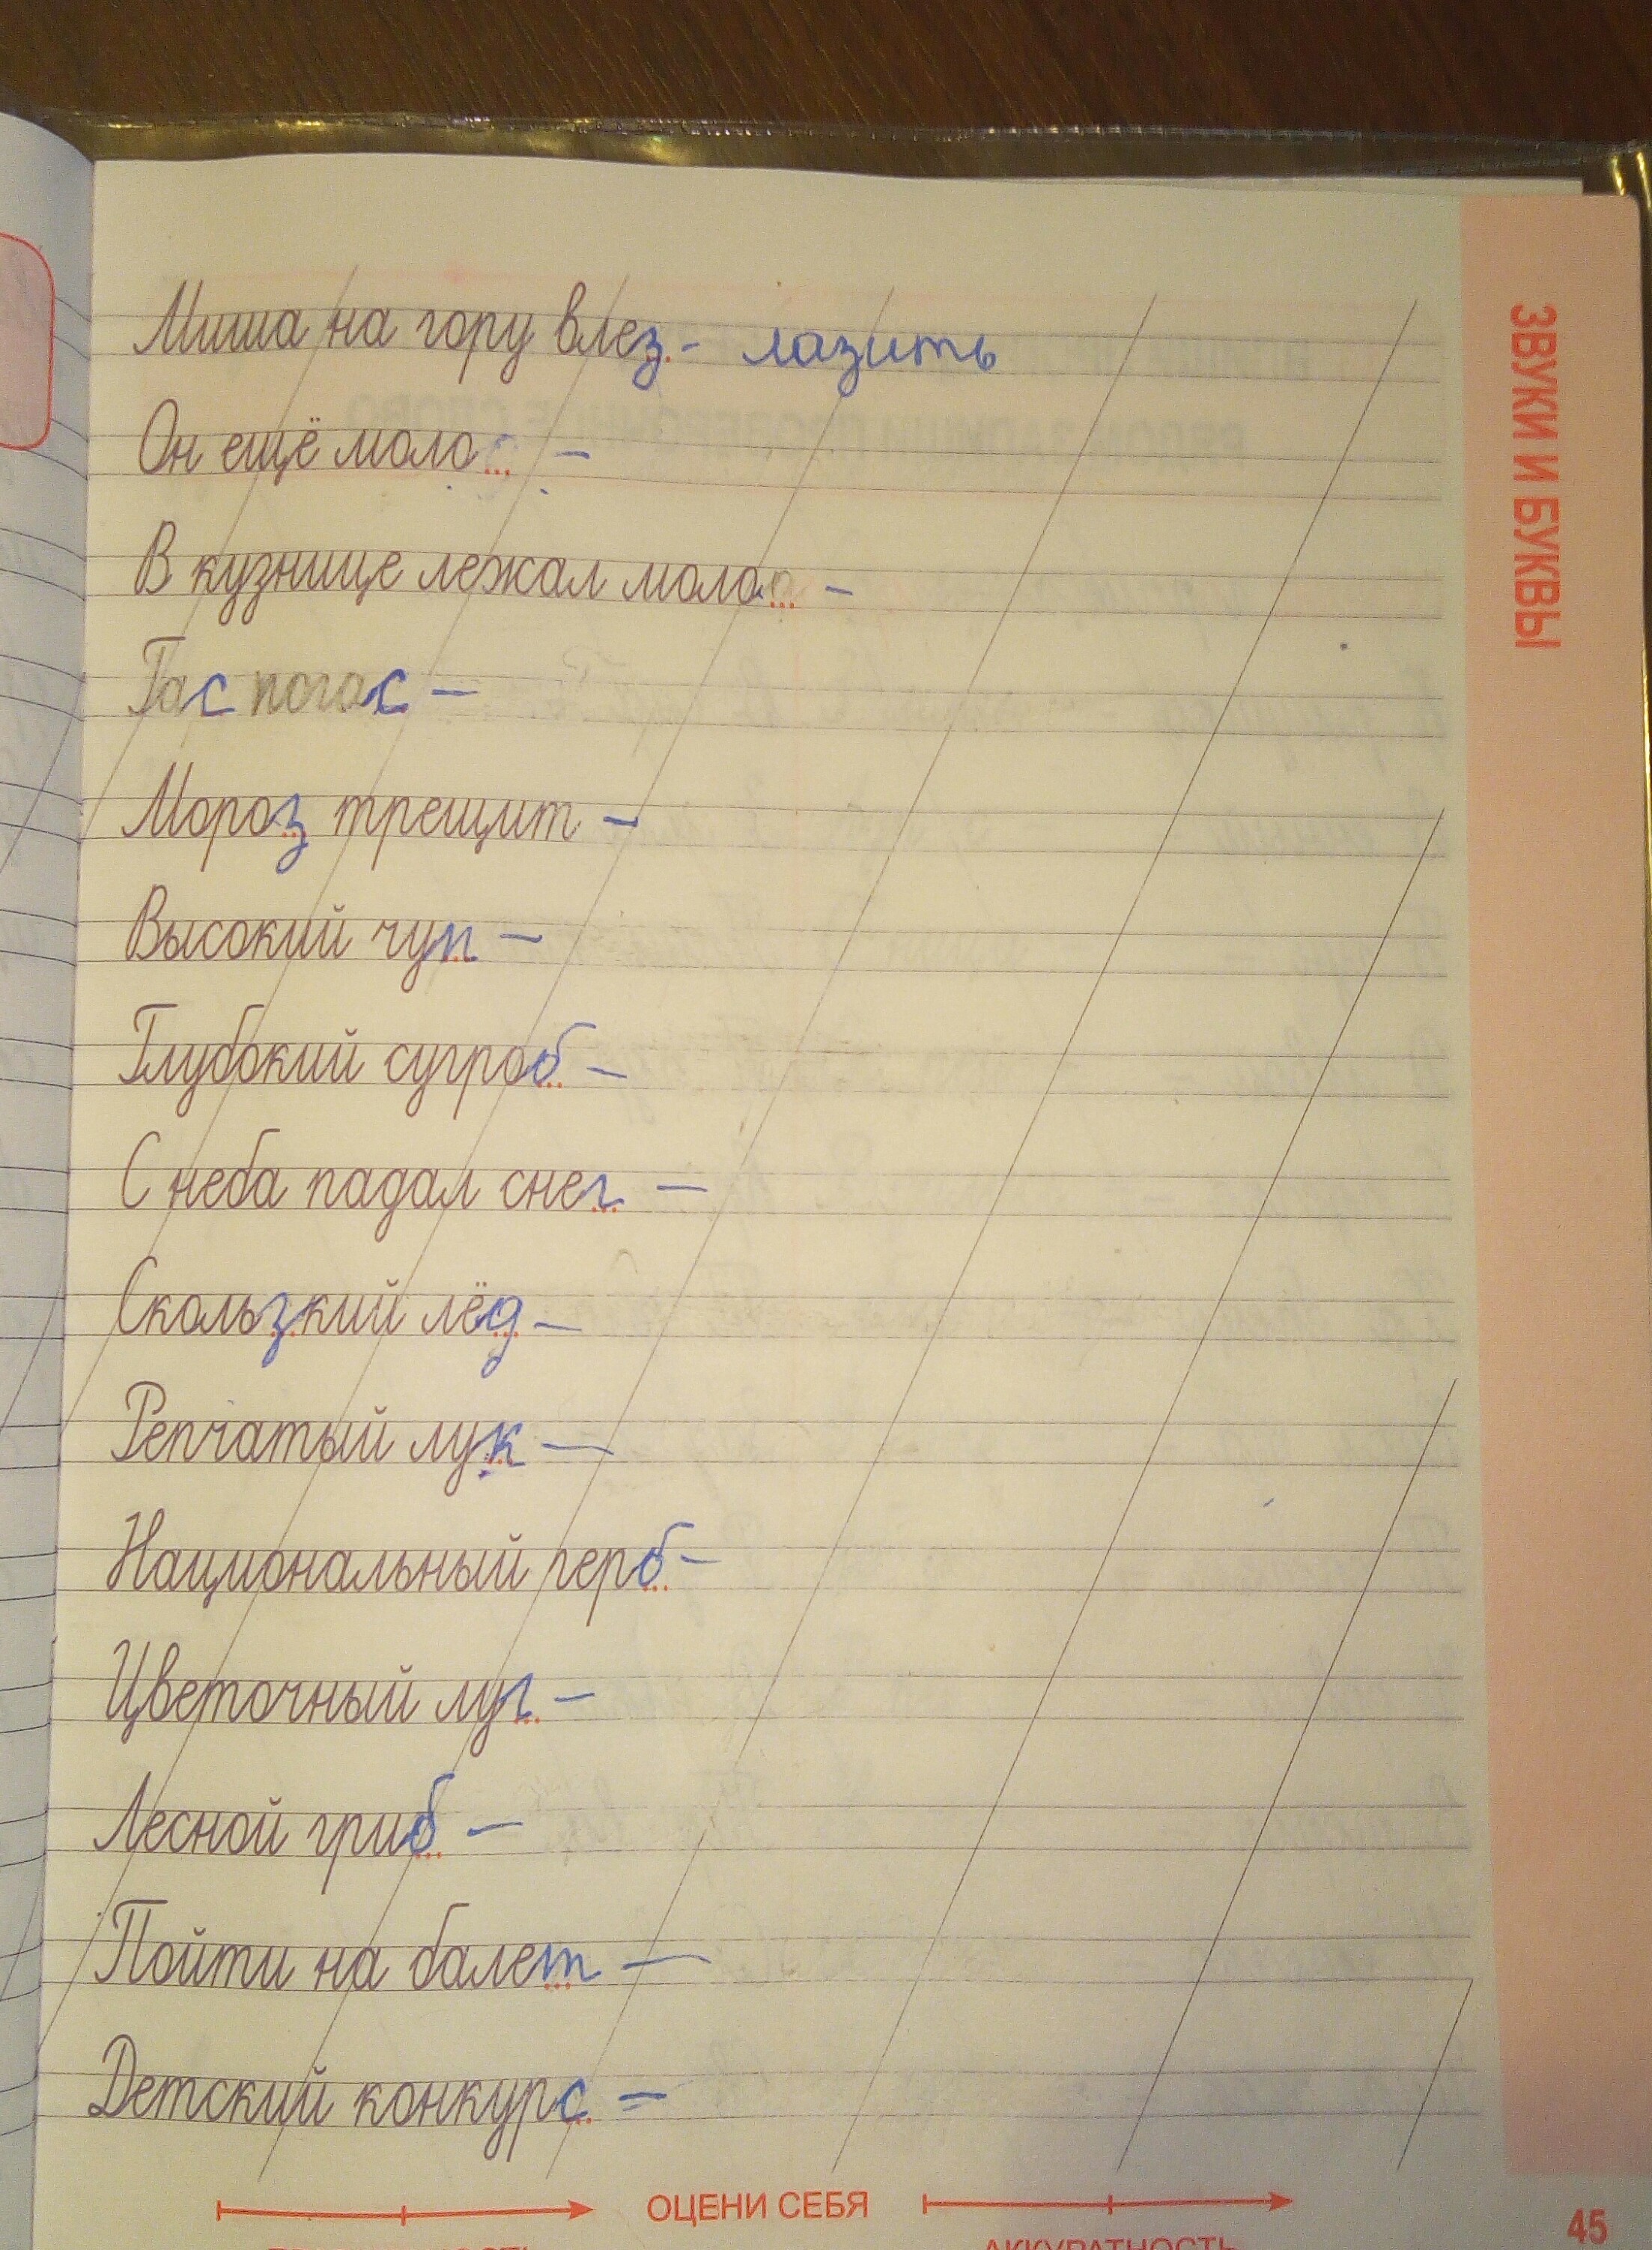 Миша на гору влез. - лазить
Он ещё моло... -
В кузнице лежал моло... -
Гас погас -
Мороз трещит -
Высокий чуп -
Глубокий сугроб -
С неба падал снег -
Скользкий лёд -
Репчатый лук -
Национальный герб -
Цветочный луг -
Лесной гриб -
Пойти на балет -
Детский конкурс -
ОЦЕНИ СЕБЯ
АККУРАТНОСТЬ
ЗВУКИ И БУКВЫ
45